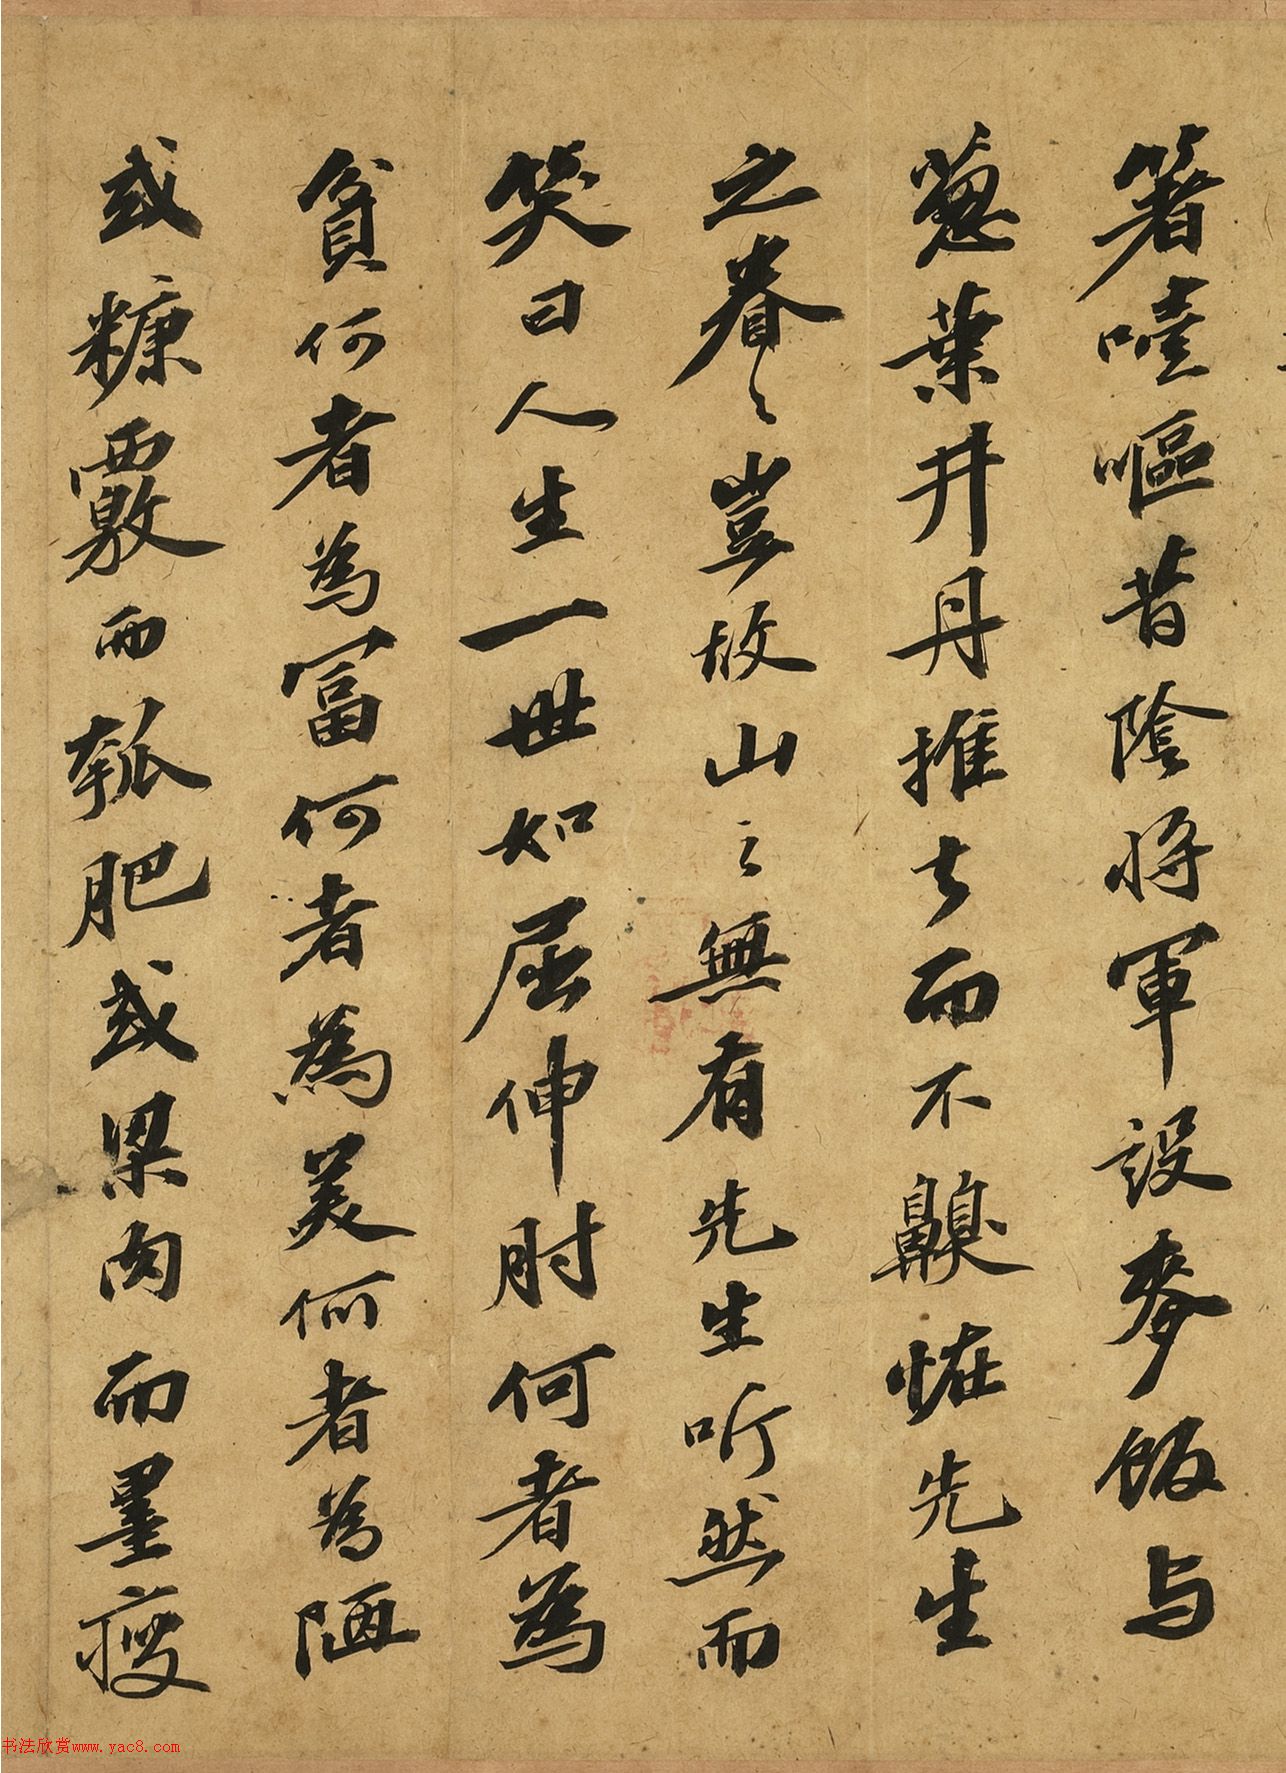 箸噎嘔昔陰將軍設麥飯与
葱葉井丹推去而不嗅怪先生
之眷〻豈故山之無有先生听然而
笑曰人生一世如屈伸肘何者為
貧何者為富何者為美何者為陋
或糠覈而瓠肥或梁肉而墨瘦
书法欣赏www.yac8.com